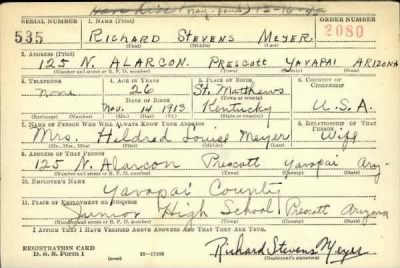 SERIAL NUMBER 1. NAME (Print) ORDER NUMBER
535 RICHARD STEVENS MEYER. 2080
(First) (Middle) (Last)
2. ADDRESS (Print)
125 N. ALARCON. PRESCOTT YAVAPAI ARIZONA
(Number and street or R. F. D. number) (Town) (County) (State)
3. TELEPHONE 4. AGE IN YEARS 5. PLACE OF BIRTH 6. COUNTRY OF CITIZENSHIP
None 26 St. Matthews
DATE OF BIRTH (Town or county)
Nov. 14 1913 Kentucky U.S.A.
(Exchange) (Number) (Mo.) (Day) (Yr.) (State or country)
7. NAME OF PERSON WHO WILL ALWAYS KNOW YOUR ADDRESS 8. RELATIONSHIP OF THAT PERSON
Mrs. Hildred Louise Meyer Wife
(Mr., Mrs., Miss) (First) (Middle) (Last)
9. ADDRESS OF THAT PERSON
125 N. Alarcon Prescott Yavapai Ariz.
(Number and street or R. F. D. number) (Town) (County) (State)
10. EMPLOYER'S NAME
Yavapai County
11. PLACE OF EMPLOYMENT OR BUSINESS
Junior High School Prescott Arizona
(Number and street or R. F. D. number) (Town) (County) (State)
I AFFIRM THAT I HAVE VERIFIED ABOVE ANSWERS AND THAT THEY ARE TRUE.
REGISTRATION CARD Richard Stevens Meyer
D. S. S. Form 1 (over) (Registrant's signature)